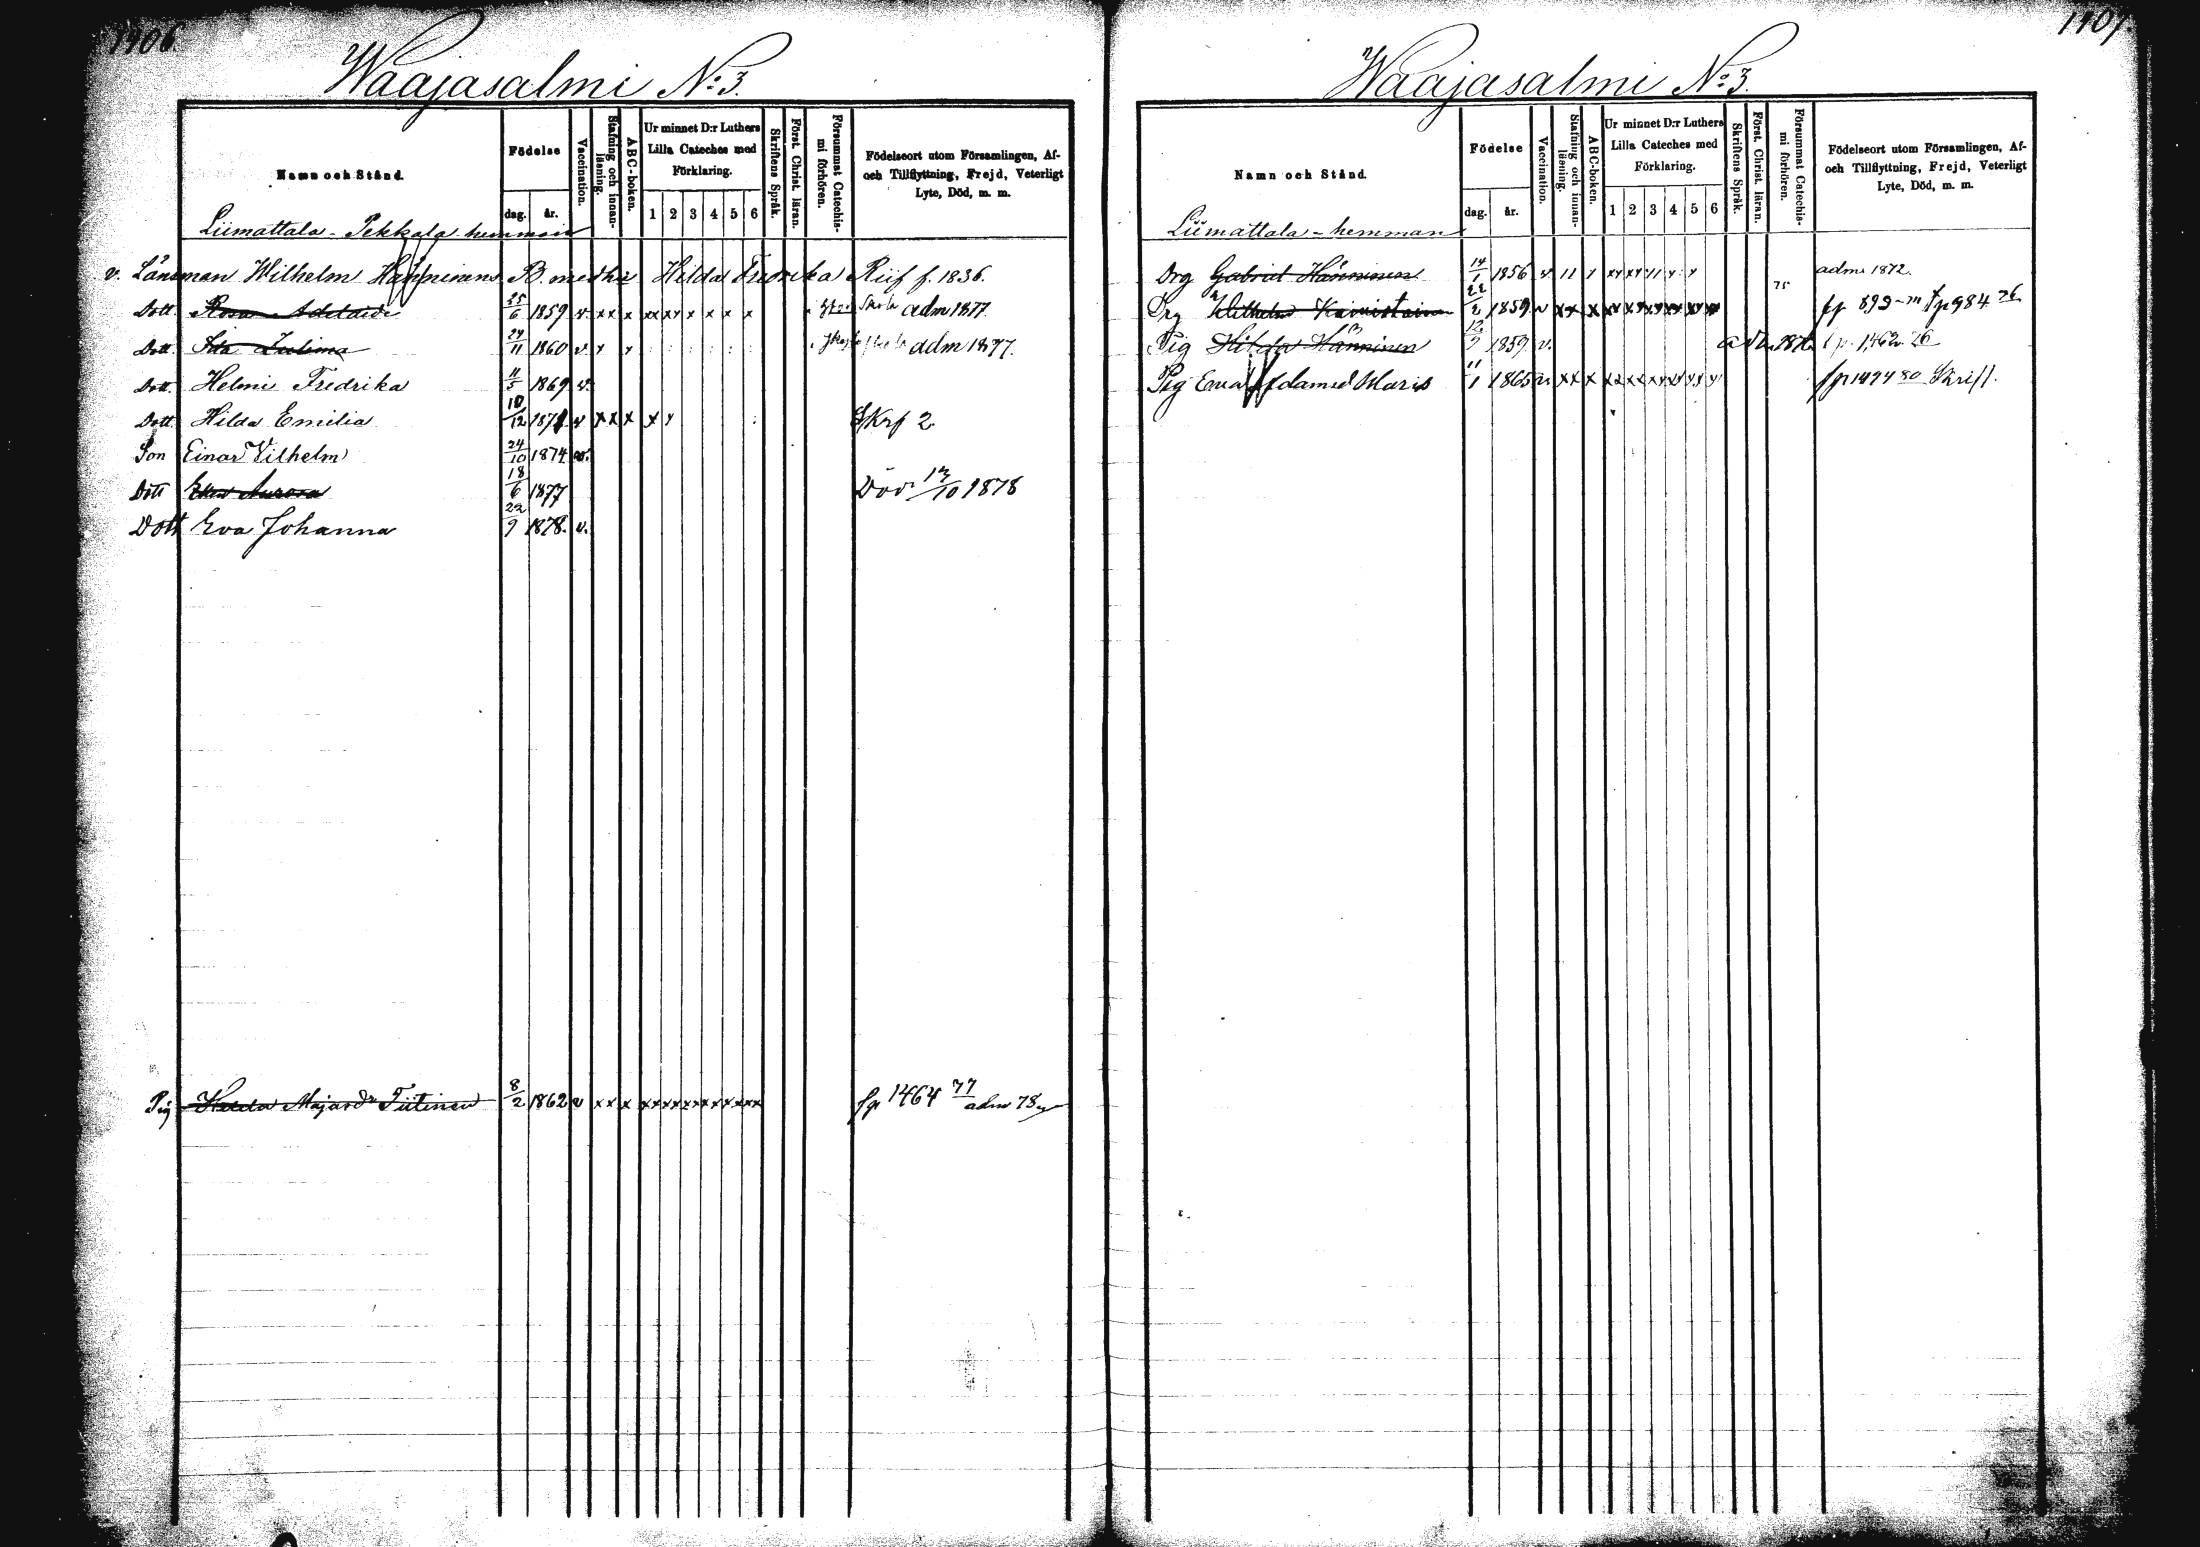 1406.
Waajasalmi No: 3.
Namn och Stånd.
Födelse
dag. år.
Vaccination.
Stafning och innan-läsning.
ABC-boken.
Ur minnet D:r Luthers Lilla Cateches med Förklaring.
1 2 3 4 5 6
Skriftens Språk.
Först. Christ. läran.
Försummat Catechis-mi förhören.
Födelseort utom Församlingen, Af- och Tillflyttning, Frejd, Veterligt Lyte, Död, m. m.
Liimattala - Pekkala hemman
v. Länsman Wilhelm Hänninens B. med hu Hilda Fredrika Riif f. 1836.
Dott. Rosa Adelaide 25/6 1859 v x x x xx xy x x x x adm 1877.
Dott. 24/11 1860 v adm 1877.
Dott. Helmi Fredrika 11/5 1869 v.
Dott Hilda Emilia 10/12 1871 v x x x x y Skrf 2
Son Einar Vilhelm 24/10 1874 v.
Dött Aurora 18/6 1877 Död 12/10 1878
Dött Eva Johanna 22/9 1878. v.
Pig Majasdr Tiitinen 8/2 1862 v x x x xx xx xx xx xx xx fp 1464 77 adm 78
1407.
Waajasalmi No: 3.
Namn och Stånd.
Födelse
dag. år.
Vaccination.
Stafning och innan-läsning.
ABC-boken.
Ur minnet D:r Luthers Lilla Cateches med Förklaring.
1 2 3 4 5 6
Skriftens Språk.
Först. Christ. läran.
Försummat Catechis-mi förhören.
Födelseort utom Församlingen, Af- och Tillflyttning, Frejd, Veterligt Lyte, Död, m. m.
Liimattala - hemman
Drg Gabriel Hänninen 14/1 1856 v 75 adm 1872.
Drg Wilhelm 22/2 1859 v xx x xx xx xx xx xx xx fp 892 tp 984 76
Pig Hilda Hänninen 12/9 1859 v. tp. 1462 76
Pig Eeva Adamsd Maris 11/1 1865 v xx x xx xx xx xx fp 1494 80 Skrift.